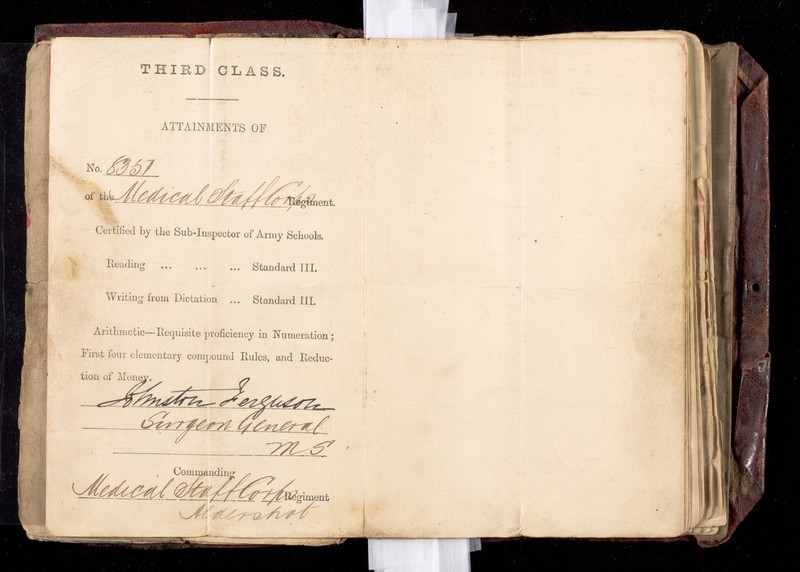 THIRD CLASS.
ATTAINMENTS OF
No. 8351
of the Medical Staff Corps Regiment.
Certified by the Sub-Inspector of Army Schools.
Reading ... ... ... Standard III.
Writing from Dictation ... Standard III.
Arithmetic—Requisite proficiency in Numeration;
First four elementary compound Rules, and Reduc-
tion of Money.
Johnston Ferguson
Surgeon General
M S
Commanding
Medical Staff Corps Regiment
Aldershot